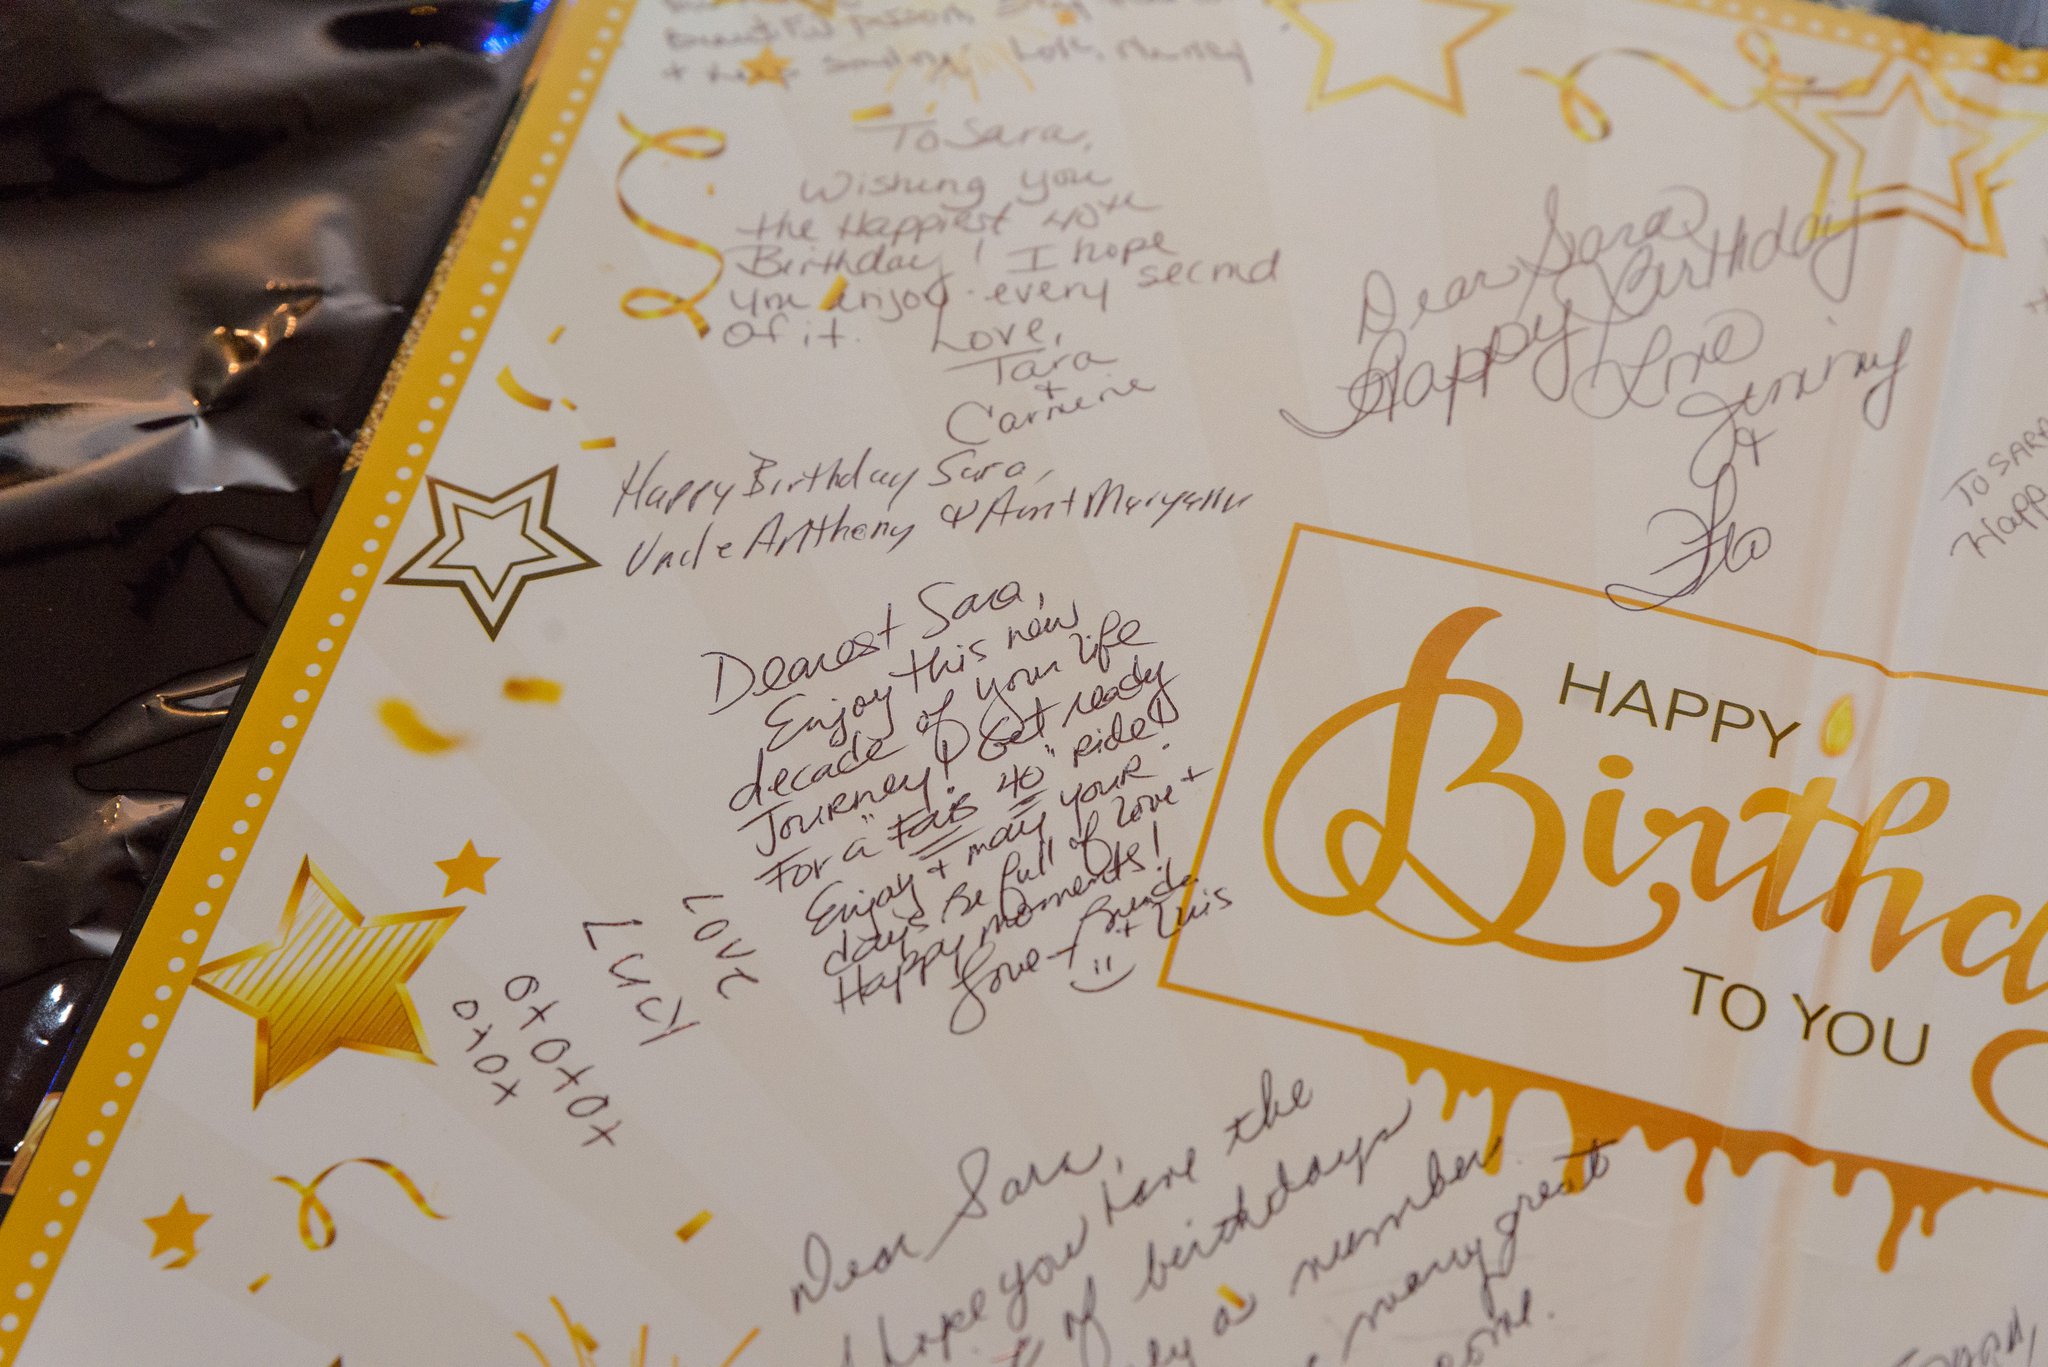 beautiful person. Stay
+ keep smiling. Love,
To Sara,
Wishing you
the Happiest 40th
Birthday! I hope
you enjoy every second
of it.
Love,
Tara
+
Carmine
Happy Birthday Sara,
Uncle Anthony & Aunt Maryann
Dear Sara
Happy Birthday
Love
Jimmy
+
Flo
To SARA
Happ
Dearest Sara,
Enjoy this new
decade of your life
Journey! Get ready
For a "Fab 40" Ride!
Enjoy + may your
days be full of love +
Happy moments!
Love - Brenda
+ Luis
HAPPY
Birthd
TO YOU
xoxoxo
xoxo
Dear Sara,
I hope you have the
of birthdays
a number
many great